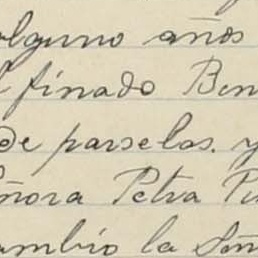 alguno años
finado Ben
de parselas. y
ñora Petra Pu
ambio la Señ